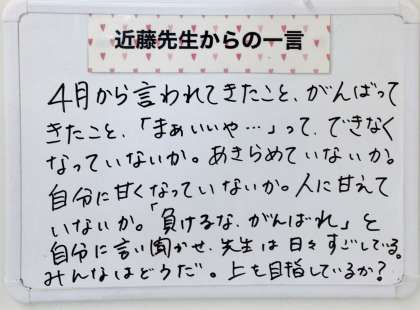 近藤先生からの一言
4月から言われてきたこと、がんばって
きたこと、「まぁいいや…」って、できなく
なっていないか。あきらめていないか。
自分に甘くなっていないか。人に甘えて
いないか。「負けるな、がんばれ」と
自分に言い聞かせ、先生は日々すごしている。
みんなはどうだ。上を目指しているか?